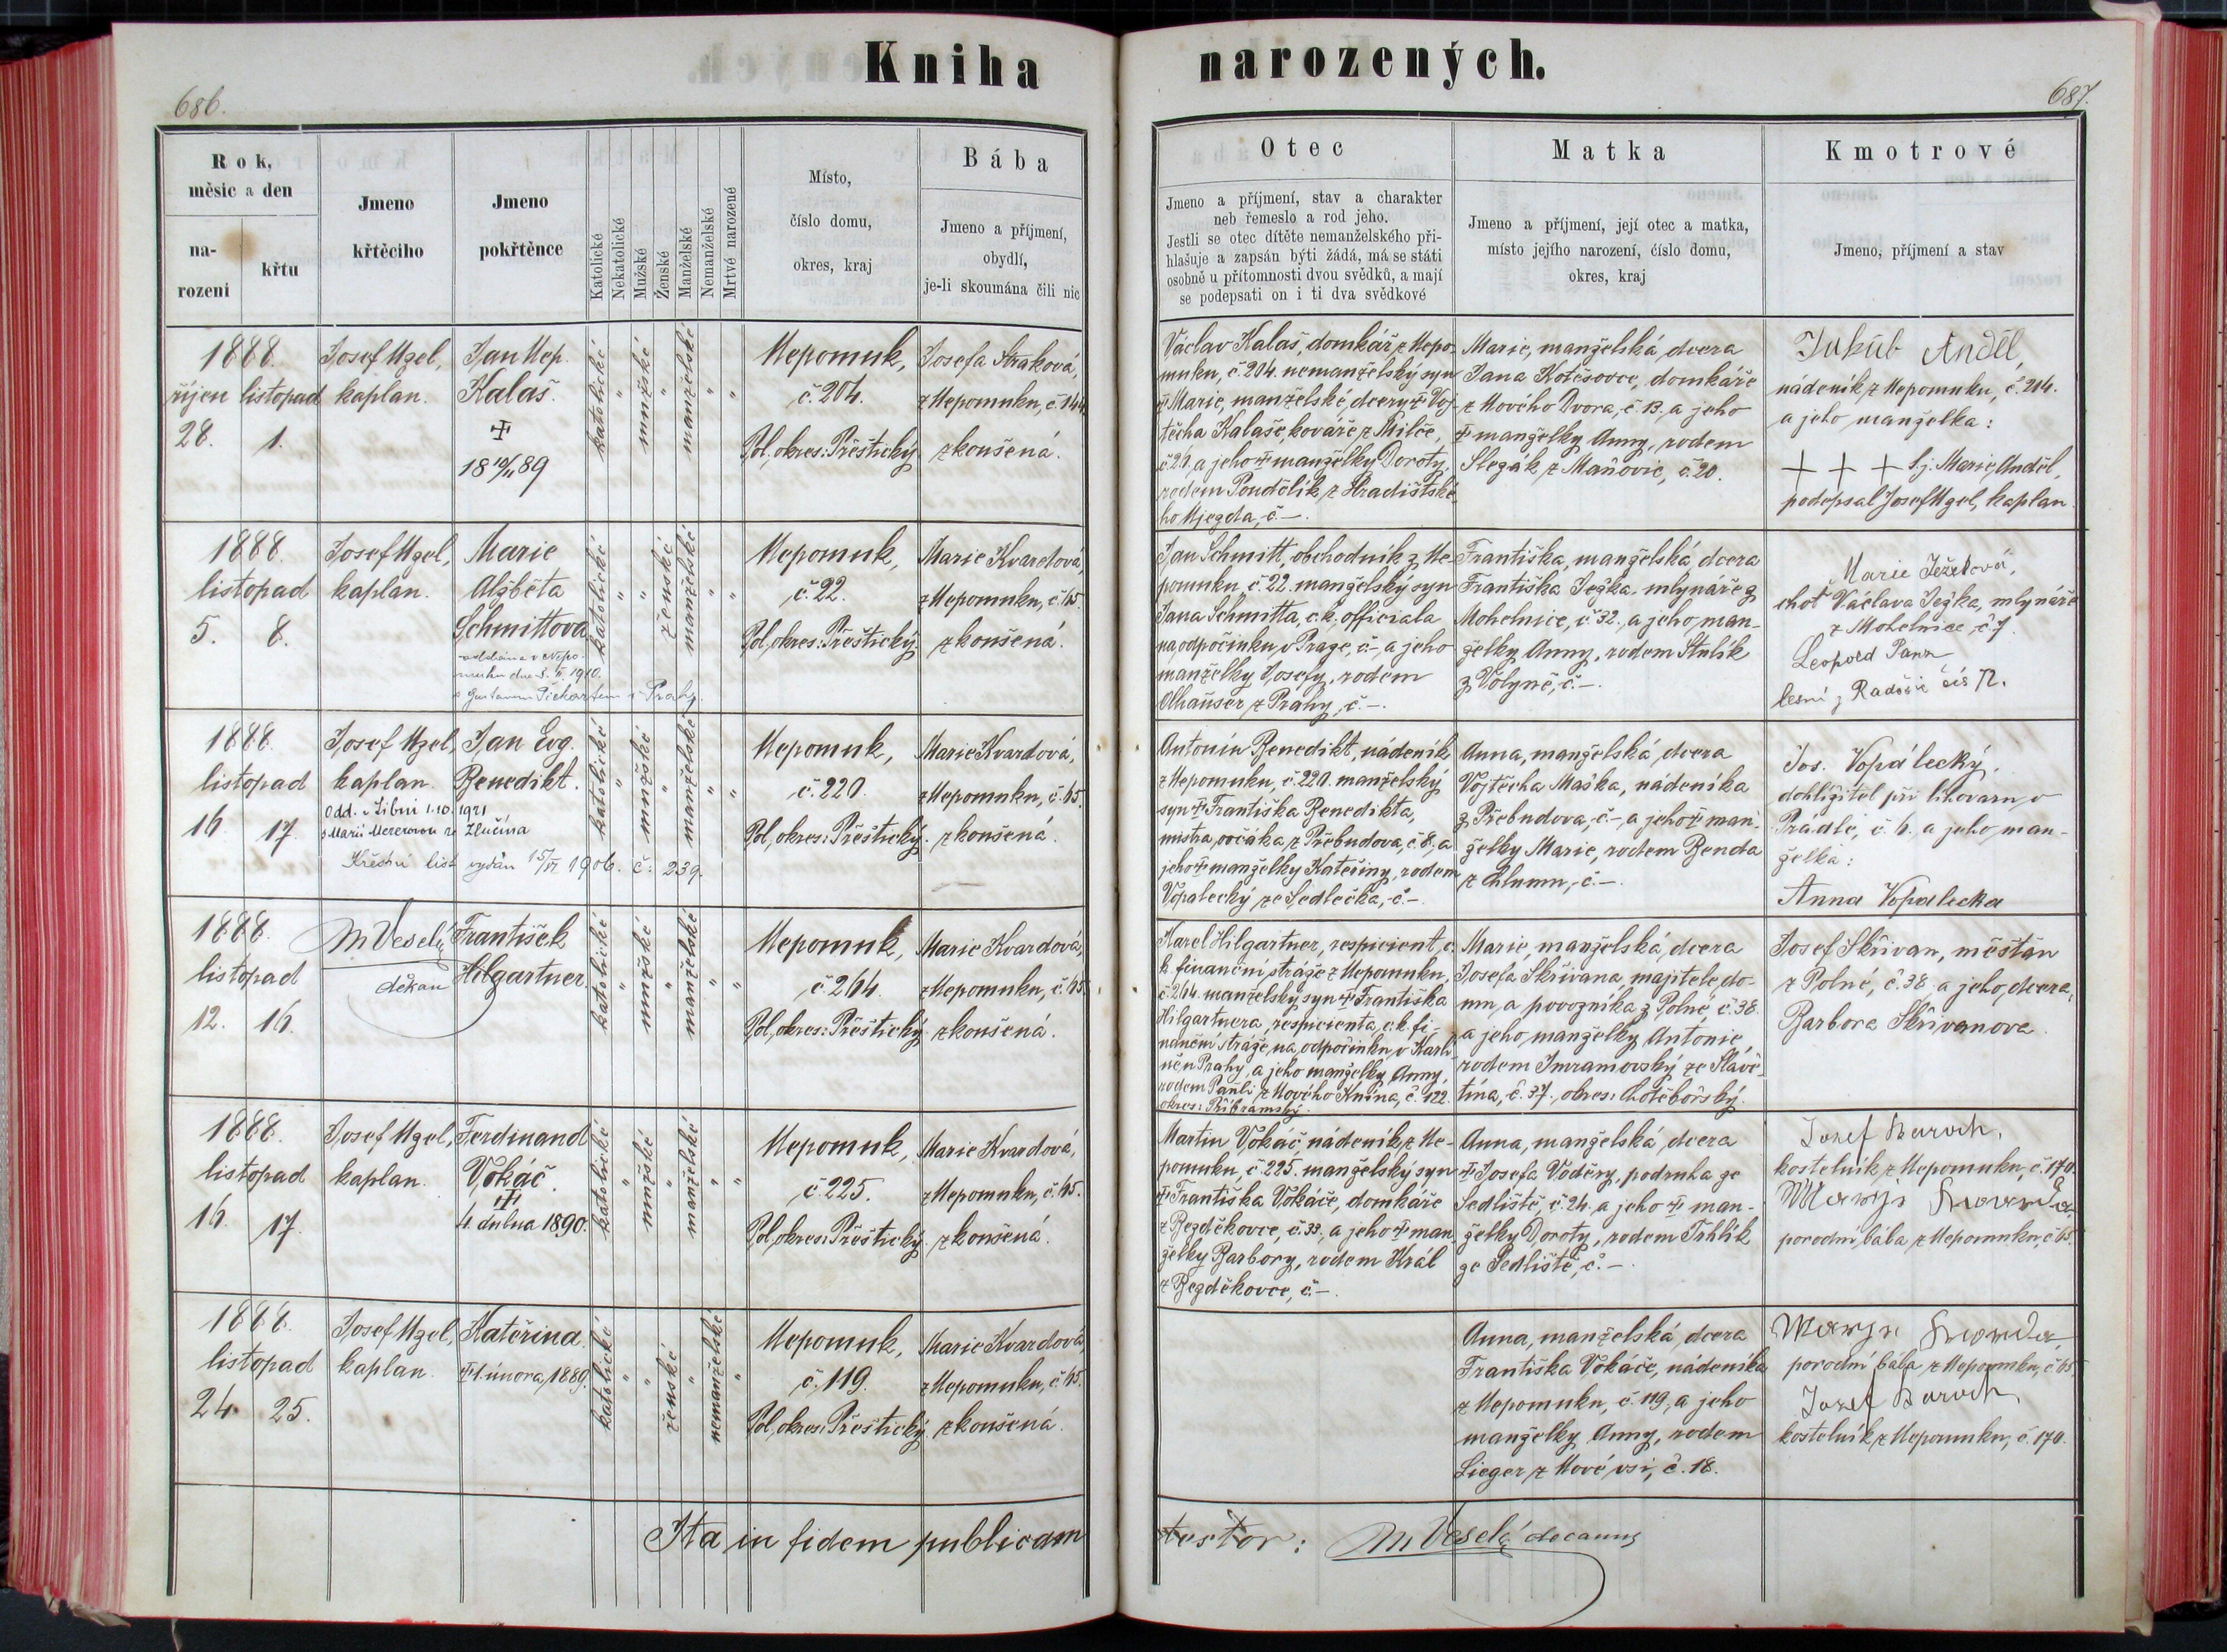 Kniha
narozených.
686.
687.
Rok,
měsíc a den
na-
rození
křtu
Jmeno
křtěcího
Jmeno
pokřtěnce
Katolické
Nekatolické
Mužské
Ženské
Manželské
Nemanželské
Mrtvé narozené
Místo,
číslo domu,
okres, kraj
Bába
Jmeno a příjmení,
obydlí,
je-li skoumána čili nic
Otec
Jmeno a příjmení, stav a charakter
neb řemeslo a rod jeho.
Jestli se otec dítěte nemanželského při-
hlašuje a zapsán býti žádá, má se státi
osobně u přítomnosti dvou svědků, a mají
se podepsati on i ti dva svědkové
Matka
Jmeno a příjmení, její otec a matka,
místo jejího narození, číslo domu,
okres, kraj
Kmotrové
Jmeno, příjmení a stav
1888.
říjen listopad
28. 1.
Josef Uzel,
kaplan.
Jan Nep.
Kalaš.
18 10/11 89
katolické " mužské " manželské " "
Nepomuk,
č. 204.
Pol. okres: Přeštický
Josefa Straková,
z Nepomuku, č. 144
zkoušená.
Václav Kalaš, domkář z Nepo-
muku, č. 204. nemanželský syn
Marie, manželské dcery Voj-
těcha Kalaše, kováře z Milče,
č. 21. a jeho manželky Doroty,
rodem Poudělík z Hradištské-
ho Újezda, č. –.
Marie, manželská dcera
Jana Kotěšovce, domkáře
z Nového Dvora, č. 13. a jeho
manželky Anny, rodem
Slezák z Maňovic, č. 20.
Jakub Anděl,
nádeník z Nepomuku, č. 204.
a jeho manželka:
+ + + t.j. Marie Anděl,
podepsal Josef Uzel, kaplan.
1888.
listopad
5. 8.
Josef Uzel,
kaplan.
Marie
Alžběta
Schmittova
oddána v Nepo-
muku dne 5. 1910.
s Gustavem Piekartem z Prahy.
katolické " " ženské manželské " "
Nepomuk,
č. 22.
Pol. okres: Přeštický
Marie Kvardová,
z Nepomuku, č. 65.
zkoušená.
Jan Schmitt, obchodník z Ne-
pomuku č. 22. manželský syn
Jana Schmitta, c. k. officiala
na odpočinku v Praze, č. –, a jeho
manželky Josefy, rodem
Alhauser z Prahy, č. –.
Františka, manželská dcera
Františka Ježka, mlynáře z
Mohelnice, č. 32., a jeho man-
želky Anny, rodem Stulík
z Volyně, č. –.
Marie Ježková,
choť Václava Ježka, mlynáře
z Mohelnice, č. 7.
Leopold Panz
lesní z Radošic
1888.
listopad
16. 17.
Josef Uzel,
kaplan.
Jan Evg.
Benedikt.
Odd. v Libni 1.10. 1921
s Marií Mezerovou ze Zlučína
Křestní list vydán 15/VI 1906. č. 239.
katolické " mužské " manželské " "
Nepomuk,
č. 220.
Pol. okres: Přeštický.
Marie Kvardová,
z Nepomuku, č. 65.
zkoušená.
Antonín Benedikt, nádeník
z Nepomuku, č. 220. manželský
syn Františka Benedikta,
mistra ovčáka z Přebudova, č. 8, a
jeho manželky Kateřiny, rodem
Vopalecký ze Sedlečka, č. –.
Anna, manželská dcera
Vojtěcha Maška, nádeníka
z Přebudova, č. –, a jeho man-
želky Marie, rodem Benda
z Chlumu, č. –.
Jos. Vopálecký,
dohližitel při lihovaru v
Prádle, č. 6. a jeho man-
želka:
Anna Vopalecka
1888.
listopad
12. 16.
M Veselý
děkan
František
Hilgartner.
katolické " mužské " manželské " "
Nepomuk,
č. 264.
Pol. okres: Přeštický.
Marie Kvardová,
z Nepomuku, č. 65.
zkoušená.
Karel Hilgartner, respicient c.
k. finanční stráže z Nepomuku,
č. 264. manželský syn Františka
Hilgartnera, respicienta c. k. fi-
nanční stráže na odpočinku v Karlí-
ně u Prahy, a jeho manželky Anny,
rodem Paňli z Nového Knína, č. 122.
okres: Příbramský.
Marie, manželská dcera
Josefa Skřivana, majitele do-
mu, a povozníka z Polné, č. 38.
a jeho manželky Antonie,
rodem Imramovský ze Slavě-
tína, č. 37., okres: Chotěbořský.
Josef Skřivan, měšťan
z Polné, č. 38. a jeho dcera,
Barbora Skřivanova.
1888.
listopad
16. 17.
Josef Uzel,
kaplan.
Ferdinand
Vokáč.
4. dubna 1890.
katolické " mužské " manželské " "
Nepomuk,
č. 225.
Pol. okres: Přeštický.
Marie Kvardová,
z Nepomuku, č. 65.
zkoušená.
Martin Vokáč, nádeník z Ne-
pomuku, č. 225. manželský syn
Františka Vokáče, domkáře
z Bezděkovce, č. 33., a jeho man-
želky Barbory, rodem Král
z Bezděkovce, č. –.
Anna, manželská dcera
Josefa Voděry, podruha ze
Sedliště, č. 24. a jeho man-
želky Doroty, rodem Trhlík
ze Sedliště, č. –.
Josef Baroch,
kostelník z Nepomuku, č. 170.
Maryje Kwarda,
porodní bába z Nepomuku, č. 65.
1888.
listopad
24. 25.
Josef Uzel,
kaplan.
Kateřina.
1. února 1889.
katolické " " ženské " nemanželské "
Nepomuk,
č. 119.
Pol. okres: Přeštický.
Marie Kvardová,
z Nepomuku, č. 65.
zkoušená.
Anna, manželská dcera
Františka Vokáče, nádeníka
z Nepomuku, č. 119, a jeho
manželky Anny, rodem
Lieger z Nové vsi, č. 18.
Maryje Kwarda,
porodní bába z Nepomuku, č. 65.
Josef Baroch,
kostelník z Nepomuku, č. 170.
Ita in fidem publicam
testor: M Veselý decanus